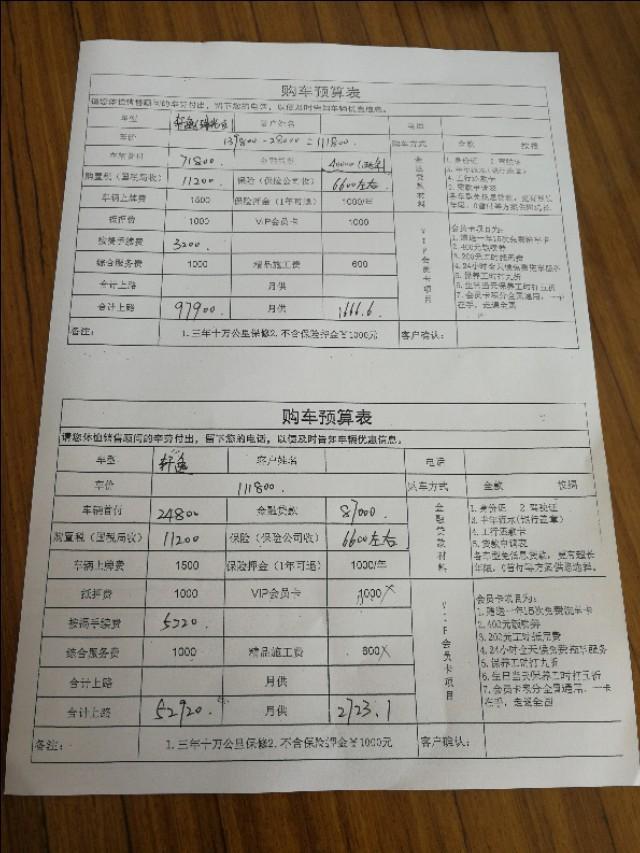 购车预算表
请您体恤销售顾问的辛劳付出，留下您的电话，以便及时告知车辆优惠信息。
车型 轩逸 客户姓名 电话
车价 139800-28000=111800 购车方式 全款 按揭
车辆首付 71800 金融贷款 40000
购置税（国税局收） 11200 保险（保险公司收） 6600左右
车辆上牌费 1500 保险押金（1年可退） 1000/年
抵押费 1000 VIP会员卡 1000
按揭手续费 3200
综合服务费 1000 精品施工费 600
合计上路 月供
合计上路 97900 月供 1666.6
金融贷款材料
1.身份证 2 驾驶证
3.半年流水(银行盖章)
4.工行还款卡
5.贷款申请表
各车型免息贷款，更有超长
年限，0首付等方案供您选择
VIP会员卡项目
会员卡项目为：
1.赠送一年15次免费洗车卡
2.400元喷漆券
3.200元工时抵用费
4.24小时全天候免费拖车服务
5.保养工时打九折
6.生日当天保养工时打五折
7.会员卡积分全国通用，一卡
在手，走遍全国
备注： 1.三年十万公里保修2.不含保险押金￥1000元 客户确认：
购车预算表
请您体恤销售顾问的辛劳付出，留下您的电话，以便及时告知车辆优惠信息。
车型 轩逸 客户姓名 电话
车价 111800. 购车方式 全款 按揭
车辆首付 24800 金融贷款 87000
购置税（国税局收） 11200 保险（保险公司收） 6600左右
车辆上牌费 1500 保险押金（1年可退） 1000/年
抵押费 1000 VIP会员卡 1000
按揭手续费 5220.
综合服务费 1000 精品施工费 600
合计上路 月供
合计上路 52920. 月供 2723.1
金融贷款材料
1.身份证 2 驾驶证
3.半年流水(银行盖章)
4.工行还款卡
5.贷款申请表
各车型免息贷款，更有超长
年限，0首付等方案供您选择
VIP会员卡项目
会员卡项目为：
1.赠送一年15次免费洗车卡
2.400元喷漆券
3.200元工时抵用费
4.24小时全天候免费拖车服务
5.保养工时打九折
6.生日当天保养工时打五折
7.会员卡积分全国通用，一卡
在手，走遍全国
备注： 1.三年十万公里保修2.不含保险押金￥1000元 客户确认：